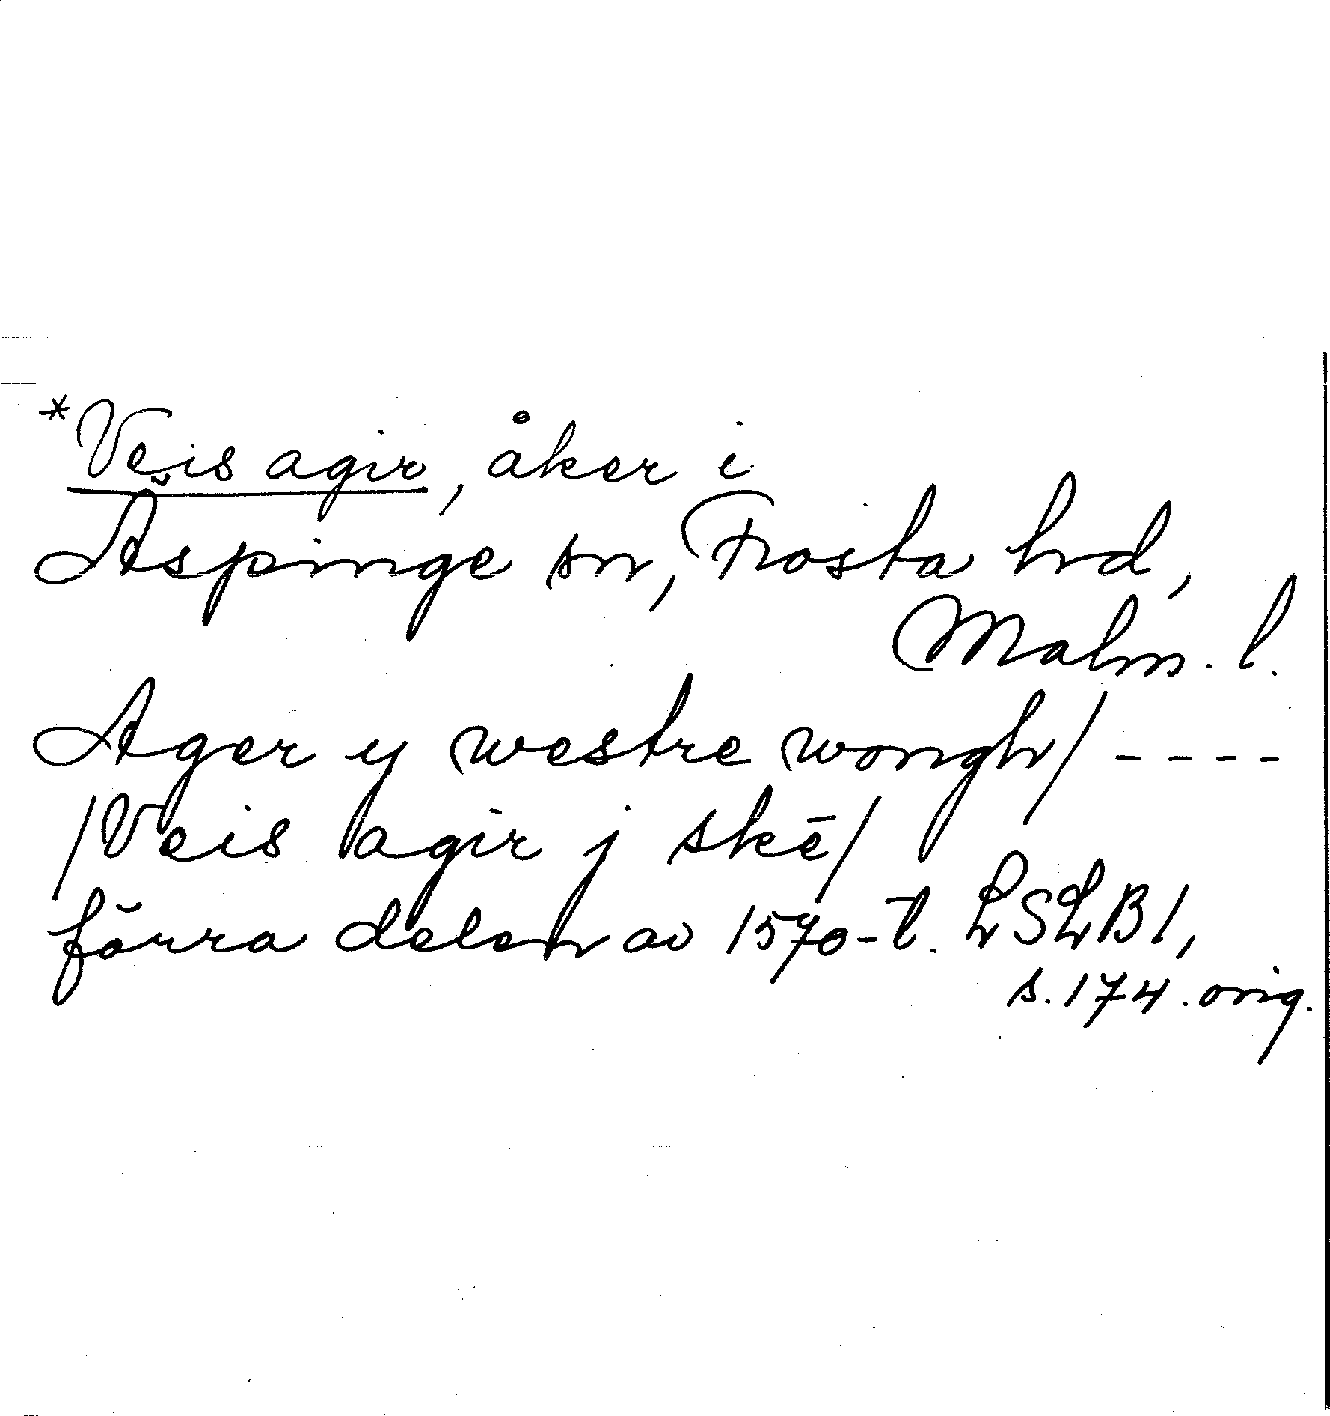 *Veis agir, åker i
Aspinge sn, Frosta hrd,
Malm. l.
Ager y westre wongh/ ----
/Veis agir j skē/
förra delen av 1570-t. LSLB 1,
s. 174. orig.